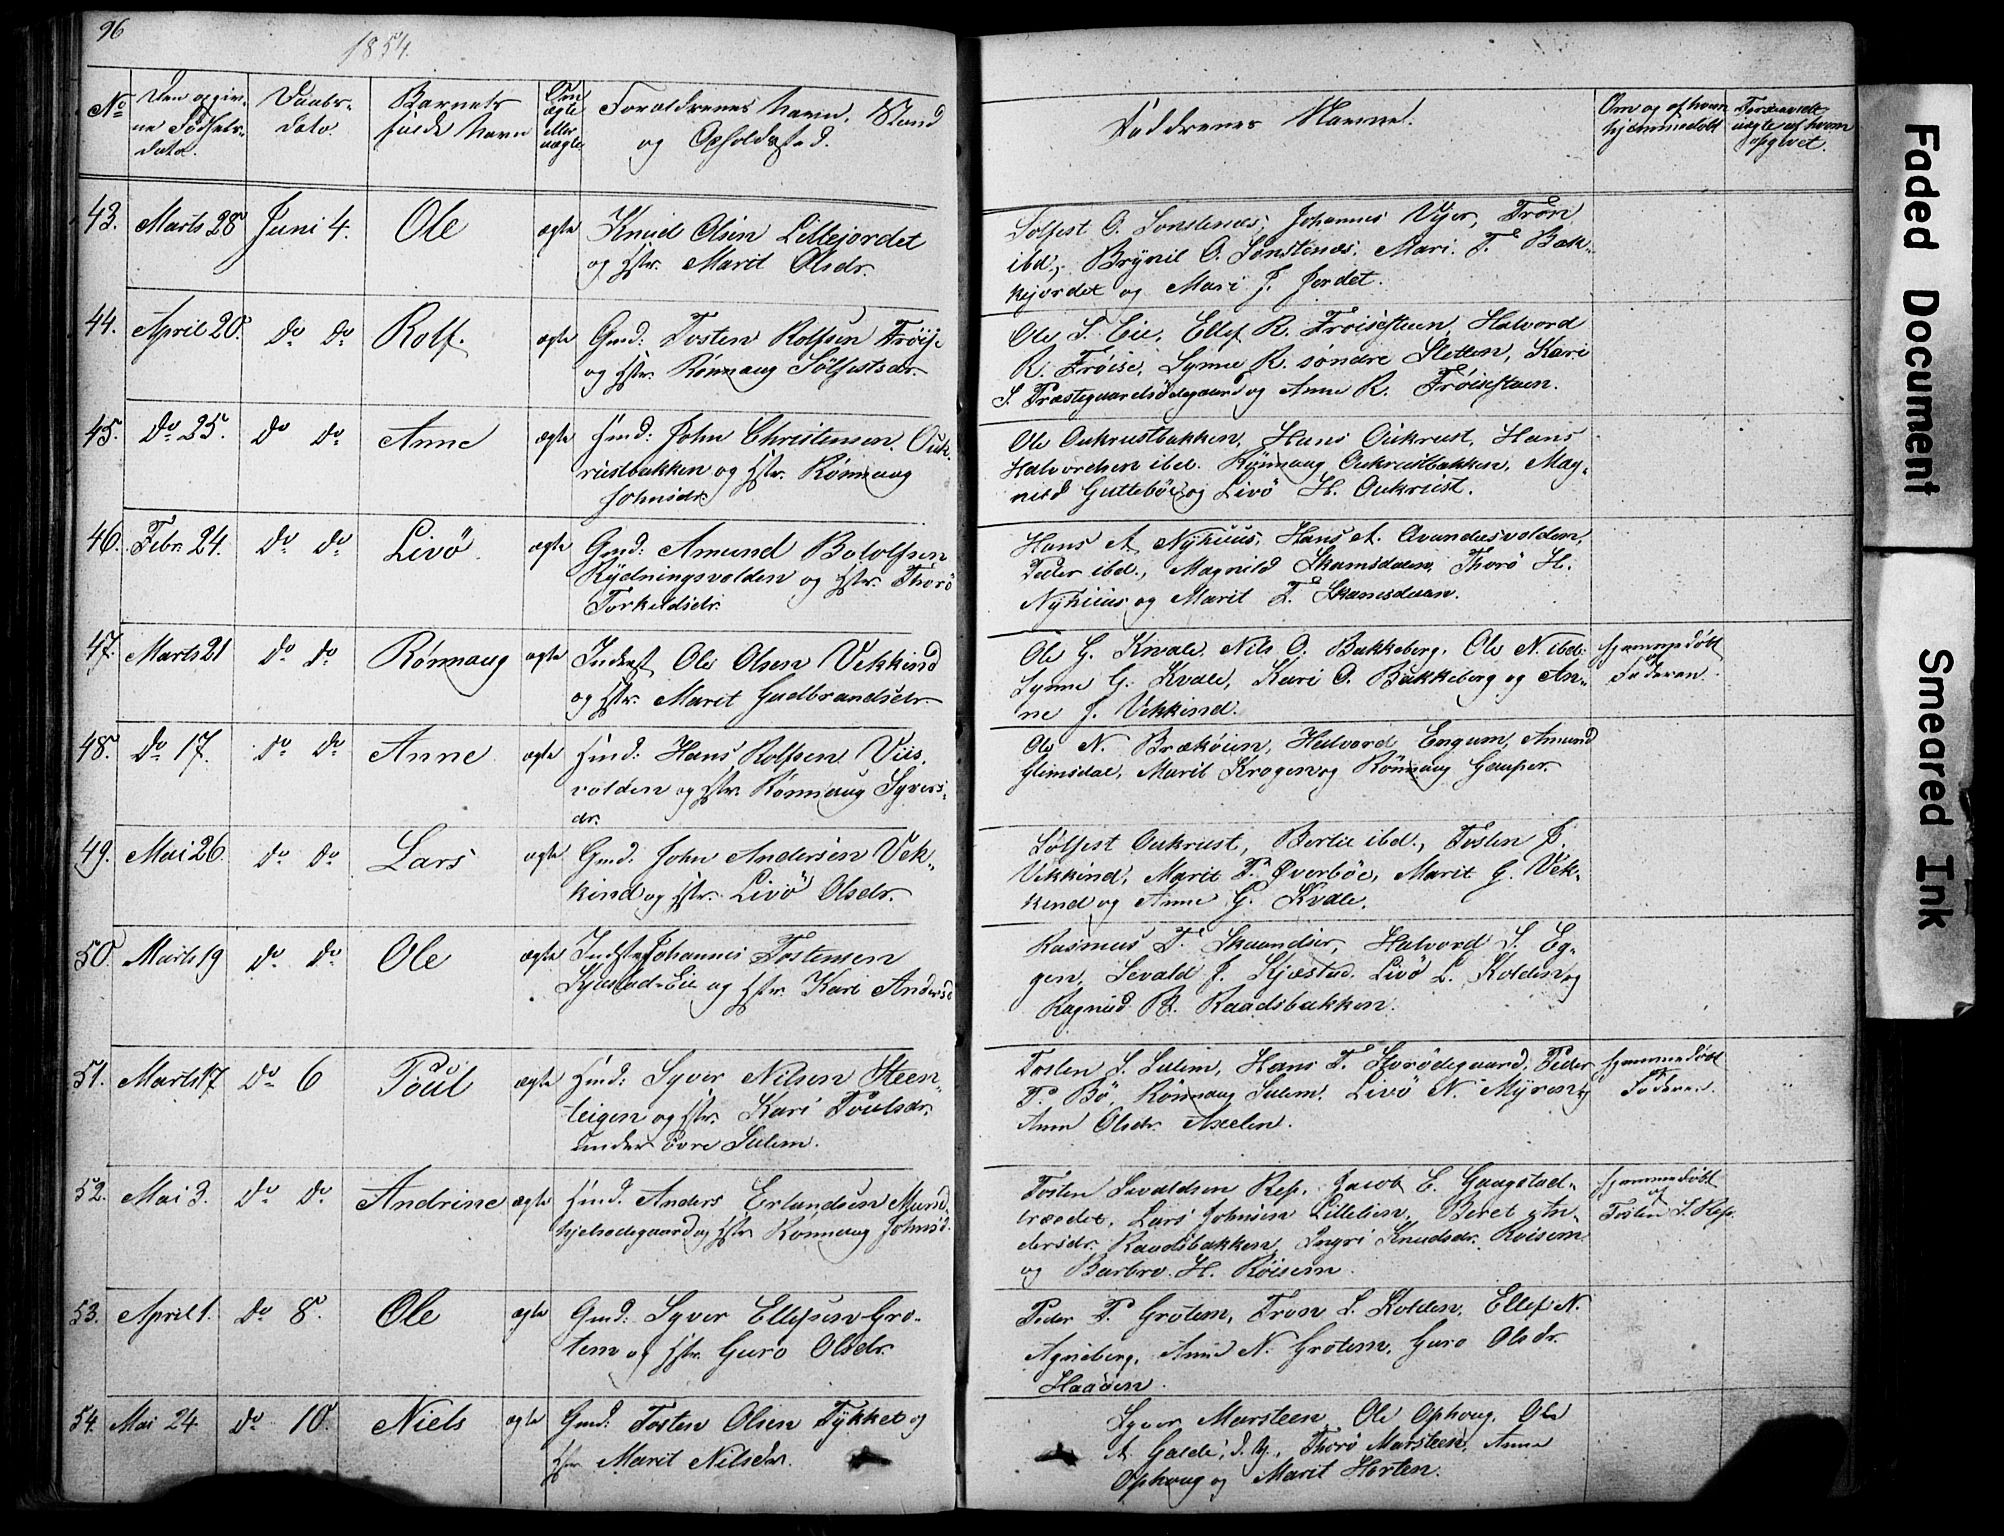 96
1854.
No
Den opgiv-
ne Fødsels-
dato.
Daabs-
dato.
Barnets
fulde Navn
Om
ægte
eller
uægte
Forældrenes Navn, Stand
og Opholdssted.
Faddrenes Navne.
Om og af hvem
hjemmedøbt
uægte af hvem
opgivet.
43. Marts 28 Juni 4. Ole ægte Knud Olsen Lillejordet
og Hstr. Marit Olsdr.
Sølfest O. Sønstenæs, Johannes, Tron
ibd., Brynil O. Sønstenæs, Mari T. Bak-
kejordet og Mari J. Jordet.
44. April 20. do do Rolf. ægte Gmd: Tosten Rolfsen Frøise
og Hstr. Rønnaug Sølfestsdr.
Ole S. Eie, Ellef R. Frøisestuen, Halvord
R. Frøise, Synne R. søndre Sletten, Kari
S. Præstegaardsødegaard og Anne R. Frøisestuen.
45. do 25. do do Anne ægte Hmd: John Christensen Ouk-
rustbakken og Hstr. Rønnaug
Johnsdr.
Ole Oukrustbakken, Hans Oukrust, Hans
Halvordsen ibd. Rønnaug Oukrustbakken, Mag-
nild Guttebøe og Livö H. Oukrust.
46. Febr. 24. do do Livö ægte Gmd: Amund Botolfsen
Rydningsvolden og Hstr. Thorö
Torkeldsdr.
Hans A. Nyhuus, Hans A. Avundusvolden,
Peder ibd., Magnild Skamsdaen, Thorö H.
Nyhuus og Marit T. Skamsdaan.
47. Marts 21 do do Rønnaug ægte Inderst Ole Olsen Vekkind
og Hstr. Marit Gudbrandsdr.
Ole G. Kvale, Nils O. Bakkeberg, Ole N. ibd.
Synne G. Kvale, Kari O. Bakkeberg og An-
ne J. Vekkind.
hjemmedøbt
af
Faderen.
48. do 17. do do Anne ægte Hmd: Hans Rolfsen Viis-
volden og Hstr. Rønnaug Syvers-
dr.
Ole N. Brækøien, Halvord Engum, Amund
Glimsdal, Marit Krogen og Rønnaug Gauper.
49. Mai 26. do do Lars ægte Gmd. John Andersen Vek-
kind og Hstr. Livö Olsdr.
Sølfest Oukrust, Bertil ibd., Tosten J.
Vekkind, Marit P. Øverbøe, Marit G. Vek-
kind og Anne G. Kvale.
50. Marts 19 do do Ole ægte Indst. Johannes Tostensen
Kjæstad-Eie og Hstr. Kari Andersd
Rasmus T. Skaandser, Halvord S. Eg-
gen, Sevald J. Kjæstad. Livö L. Kolden og
Ragnild R. Raadsbakken.
51. Marts 17 do 6 Poul ægte Hmd: Syver Nilsen Steen-
teigen og Hstr. Kari Poulsdr.
under övre Sulem.
Tosten S. Sulem, Hans T. Horødegaard, Peder
P. Bö, Rønnaug Sulem, Livö N. Myren og
Anne Olsdr. Axelen.
hjemmedøbt
af
Faderen.
52. Mai 3. do do Andrine ægte Hmd. Anders Erlandsen Mund-
hjelsødegaard og Hstr. Rønnaug Johnsd.
Tosten Sevaldsen Rep. Jacob E. Gaugstad-
træedet, Lars Johnsen Lillelien, Beret An-
dersdr. Raadsbakken, Ingri Knudsdr. Röisem
og Barbro H. Röisem.
hjemmedøbt
af
Tosten S. Rep.
53. April 1. do 8. Ole ægte Gmd: Syver Ellefsen Gro-
tem og Hstr. Guro Olsdr.
Peder P. Grotem, Tron L. Kolden, Ellef N.
Agneberg, Anne N. Grotem, Guro Olsdr.
Haaøen.
54. Mai 24. do 10. Niels ægte Gmd: Tosten Olsen Tykket og
Hstr Marit Nilsdr.
Syver Marsteen, Ole Ophoug, Ole
A. Galde, d. y., Thorö Marsteen, Anne
Ophoug og Marit Horten.
Faded Document
Smeared Ink